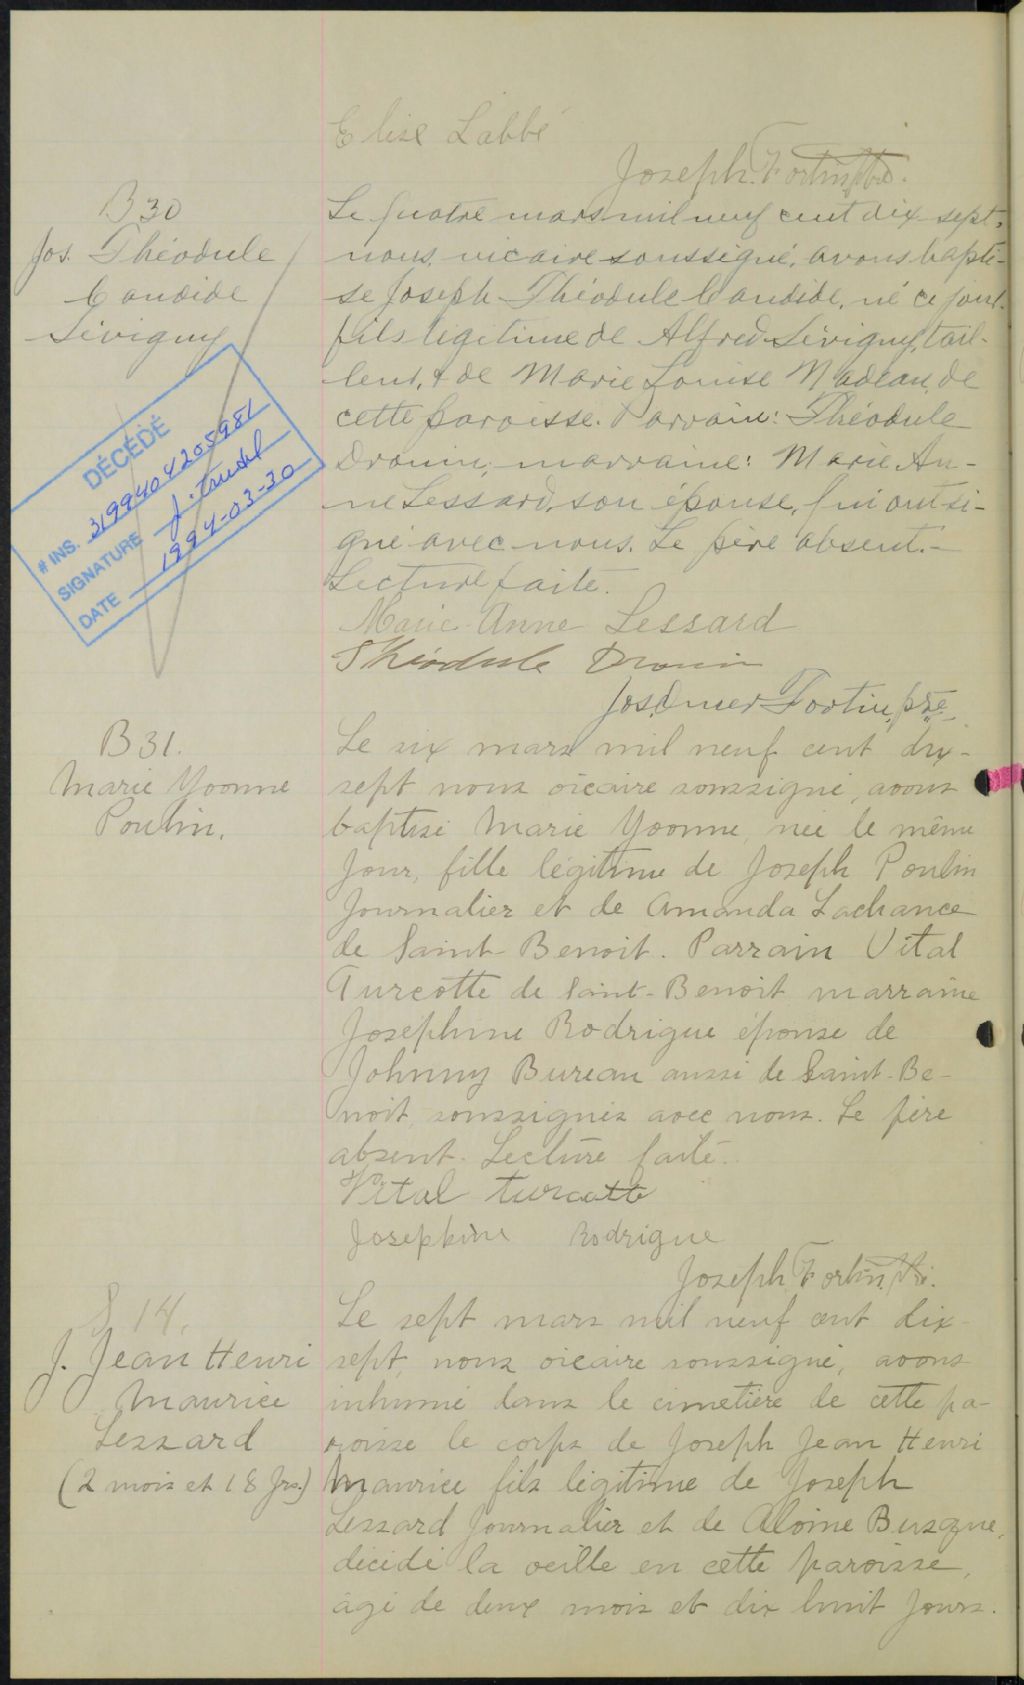 Elise Labbé
Joseph Fortin ptre.
B 30
Jos. Théodule
Candide
Sévigny
Le quatre mars mil neuf cent dix-sept,
nous, vicaire soussigné, avons bapti-
sé Joseph Théodule Candide, né ce jour
fils légitime de Alfred Sévigny, tail-
leur, & de Marie Louise Nadeau, de
cette paroisse. Parrain: Théodule
Drouin; marraine: Marie An-
ne Lessard, son épouse, qui ont si-
gné avec nous. Le père absent.-
Lecture faite.
Marie-Anne Lessard
Théodule Drouin
Jos. Omer Fortin, ptre
DÉCÉDÉ
# INS. 3199404205981
SIGNATURE J. Trudel
DATE 1994-03-30
B 31.
Marie Yvonne
Poulin.
Le six mars mil neuf cent dix-
sept nous vicaire soussigné, avons
baptisé Marie Yvonne, née le même
jour, fille légitime de Joseph Poulin
journalier et de Amanda Lachance
de Saint-Benoit. Parrain Vital
Turcotte de Saint-Benoit marraine
Joséphine Rodrigue épouse de
Johnny Bureau aussi de Saint-Be-
noit, soussignés avec nous. Le père
absent. Lecture faite.
Vital Turcotte
Josephine Rodrigue
Joseph Fortin ptre.
S 14.
J. Jean Henri
Maurice
Lessard
(2 mois et 18 jrs.)
Le sept mars mil neuf cent dix-
sept, nous vicaire soussigné, avons
inhumé dans le cimetière de cette pa-
roisse le corps de Joseph Jean Henri
Maurice fils légitime de Joseph
Lessard journalier et de Aloine Busque,
décédé la veille en cette paroisse,
âgé de deux mois et dix huit jours.